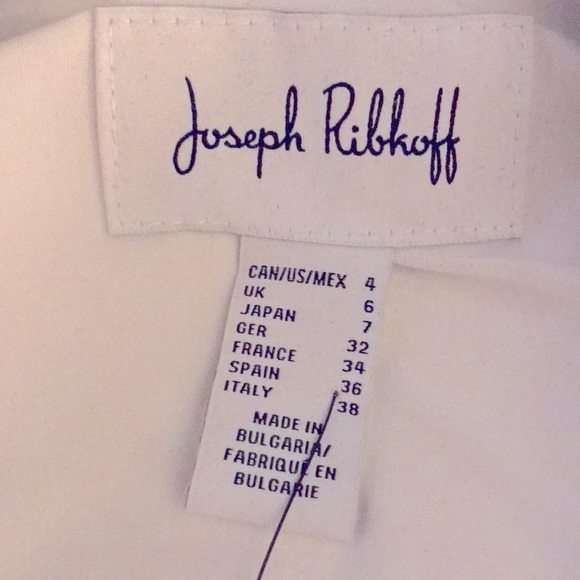 Joseph Ribkoff
CAN/US/MEX 4
UK 6
JAPAN 7
GER 32
FRANCE 34
SPAIN 36
ITALY 38
MADE IN
BULGARIA/
FABRIQUE EN
BULGARIE